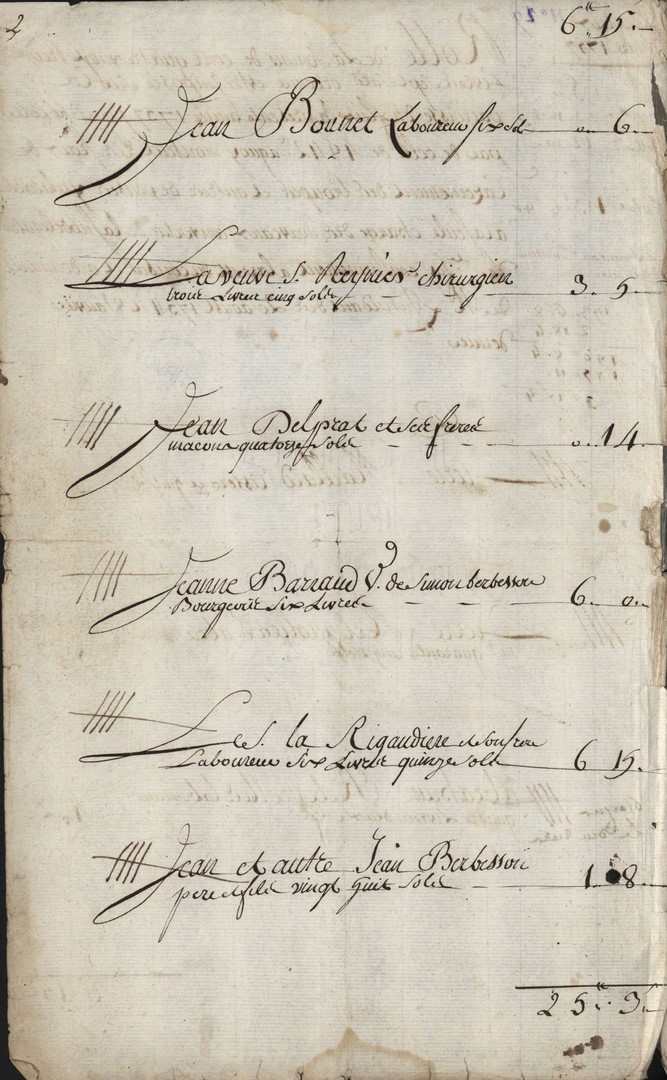 2
6ᵗᵗ 15.
Jean Bounet Laboureur six sols o. 6.
La veuve s. Reynies chirurgien 3. 5.
trois Livres cinq sols
Jean Delprat et ses freres
macons quatorze sols o. 14.
Jeanne Barraud V. de Simon berbesson
Bourgeoise six Livres 6. o.
Le s. la Rigaudiere et son frere
Laboureur six Livres quinze sols 6 15.
Jean et autre Jean Berbesson
pere et fils vingt huit sols 1. 8.
25ᵗᵗ 3.